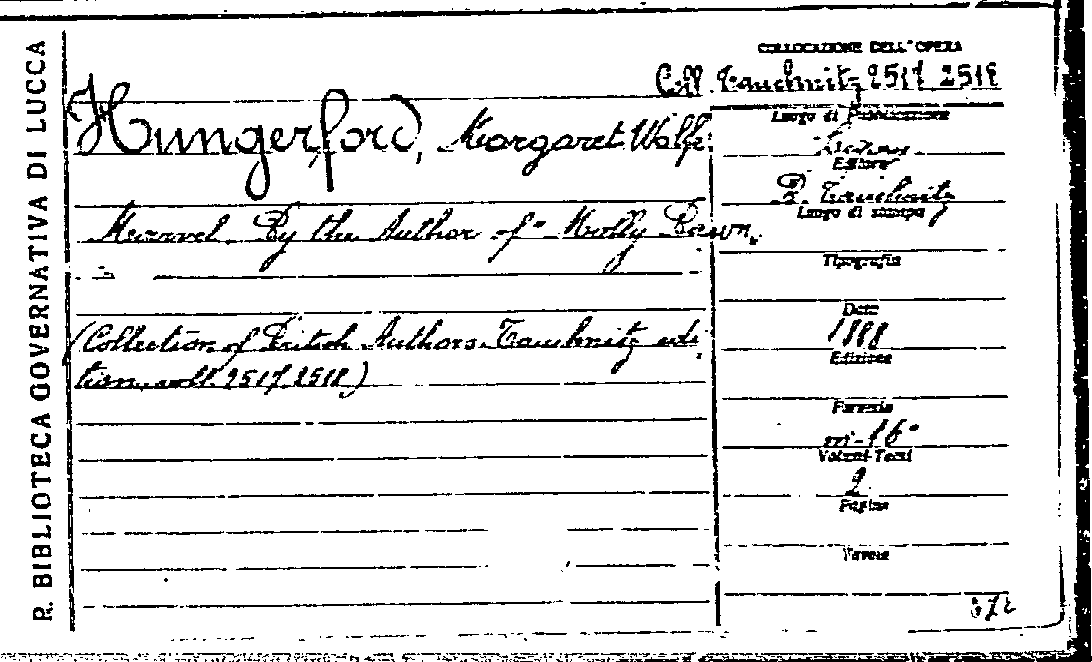 R. BIBLIOTECA GOVERNATIVA DI LUCCA
COLLOCAZIONE DELL'OPERA
Coll. Tauchnitz 2517 2518
Hungerford, Margaret Wolfe
Marvel. By the Author of "Molly Bawn."
(Collection of British Authors. Tauchnitz edi
tion, voll. 2517 2518)
Luogo di Pubblicazione
Editore
B. Tauchnitz
Luogo di stampa
Tipografia
Data
1888
Edizione
Formato
in-16°
Volumi-Tomi
2
Pagine
Tavole